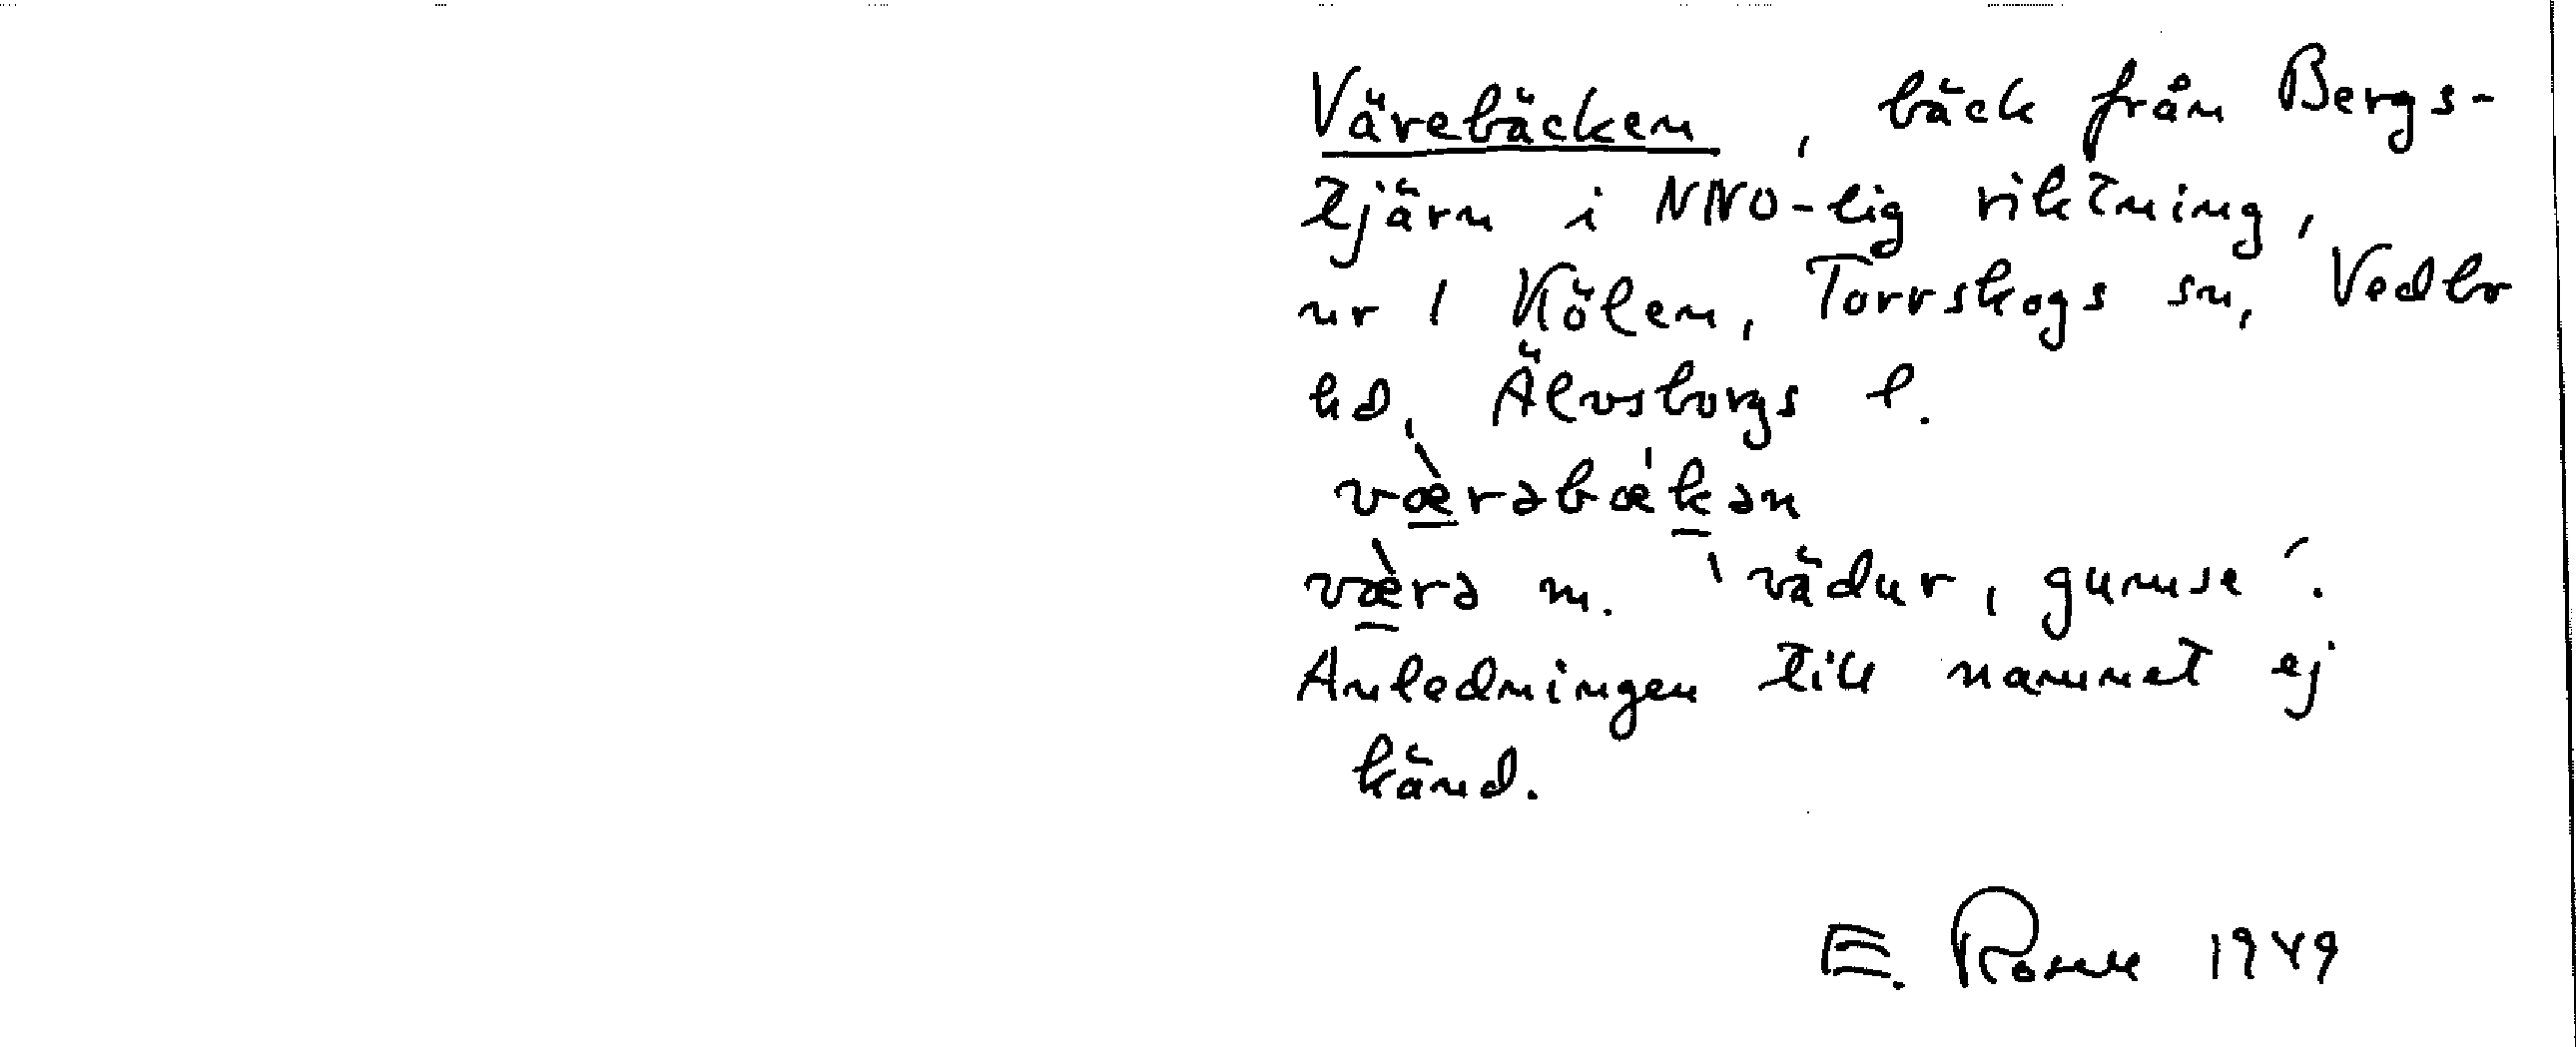 Värebäcken, bäck från Bergs-
tjärn i NNO-lig riktning,
nr 1 Kölen, Torrskogs sn, Vedbo
hd, Älvsborgs l.
væ̀rəbækən
væ̀rə m. 'vädur, gumse'.
Anledningen till namnet ej
känd.
E. 1949